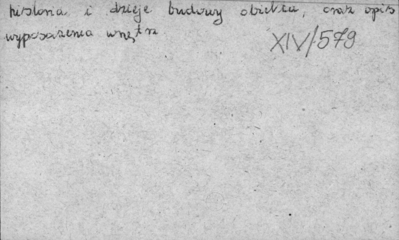 historia i dzieje budowy obiektu, oraz opis
wyposażenia wnętrz
XIV/579